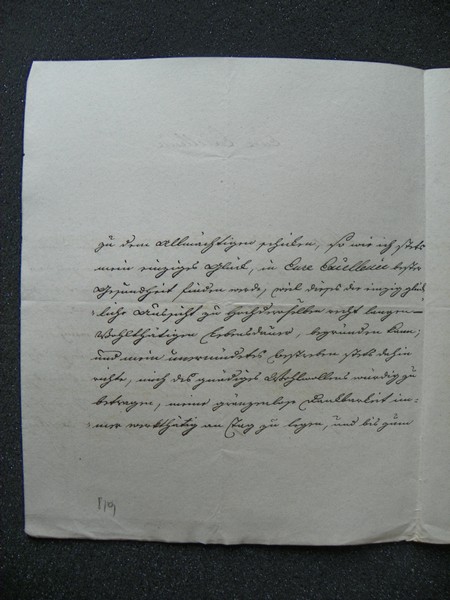 zu dem Allmächtigen schicken, so wie ich stets
mein einziges Glück, in Eure Excellence bester
Gesundheit finden werde, weil dieses die einzig glück-
liche Aussicht zu Hochderselben recht langen
Wohlthätigen Lebensdauer, begründen kann;
und mein unermüdetes Bestreben stets dahin
richte, mich des gnädigen Wohlwollens würdig zu
betragen, meine gränzenlose Dankbarkeit im-
mer werkthätig an Tag zu legen, und bis zum